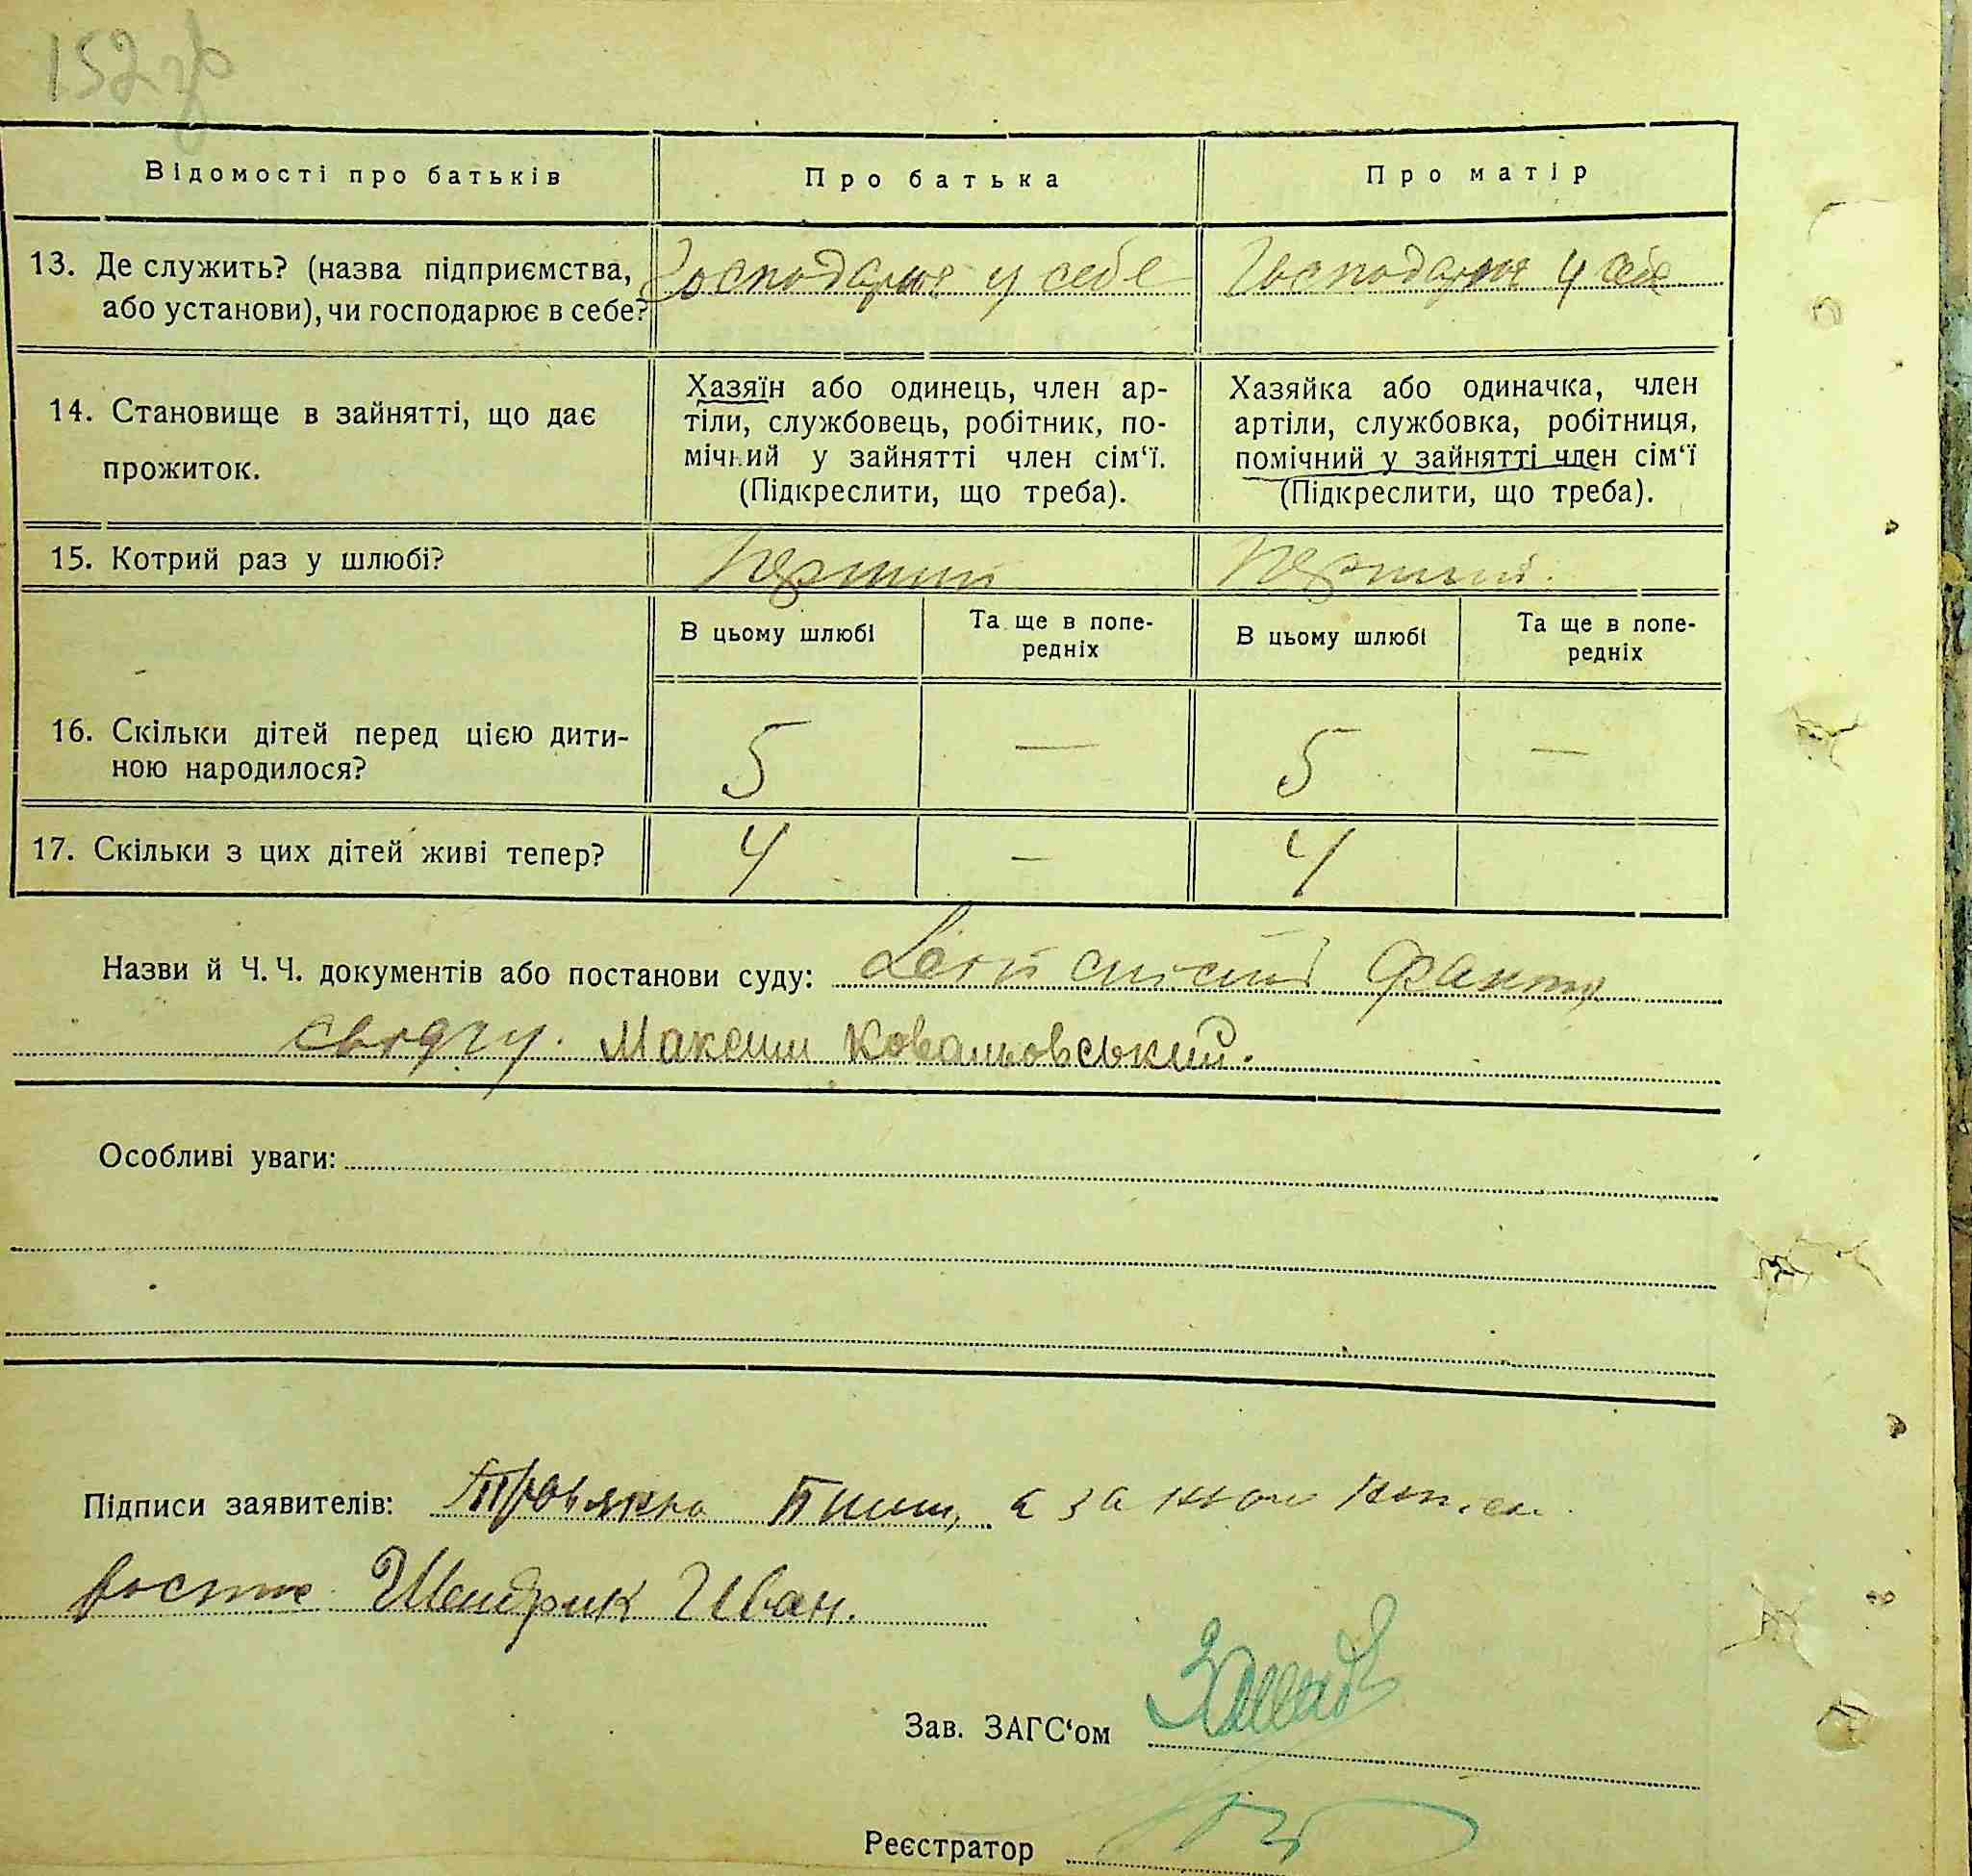 152 зв
Відомості про батьків
Про батька
Про матір
13. Де служить? (назва підприємства,
або установи), чи господарює в себе?
Господарює у себе
Господарює у себе
14. Становище в зайнятті, що дає
прожиток.
Хазяїн або одинець, член ар-
тіли, службовець, робітник, по-
мічний у зайнятті член сім‘ї.
(Підкреслити, що треба).
Хазяйка або одиначка, член
артіли, службовка, робітниця,
помічний у зайнятті член сім‘ї
(Підкреслити, що треба).
15. Котрий раз у шлюбі?
Перший
Перший.
В цьому шлюбі
Та ще в попе-
редніх
В цьому шлюбі
Та ще в попе-
редніх
16. Скільки дітей перед цією дити-
ною народилося?
5
—
5
—
17. Скільки з цих дітей живі тепер?
4
—
4
Назви й Ч. Ч. документів або постанови суду:
факт
свідчу. Максим Ковальовський.
Особливі уваги:
Підписи заявителів:
а за
Шендрик Иван.
Зав. ЗАГС‘ом
Реєстратор